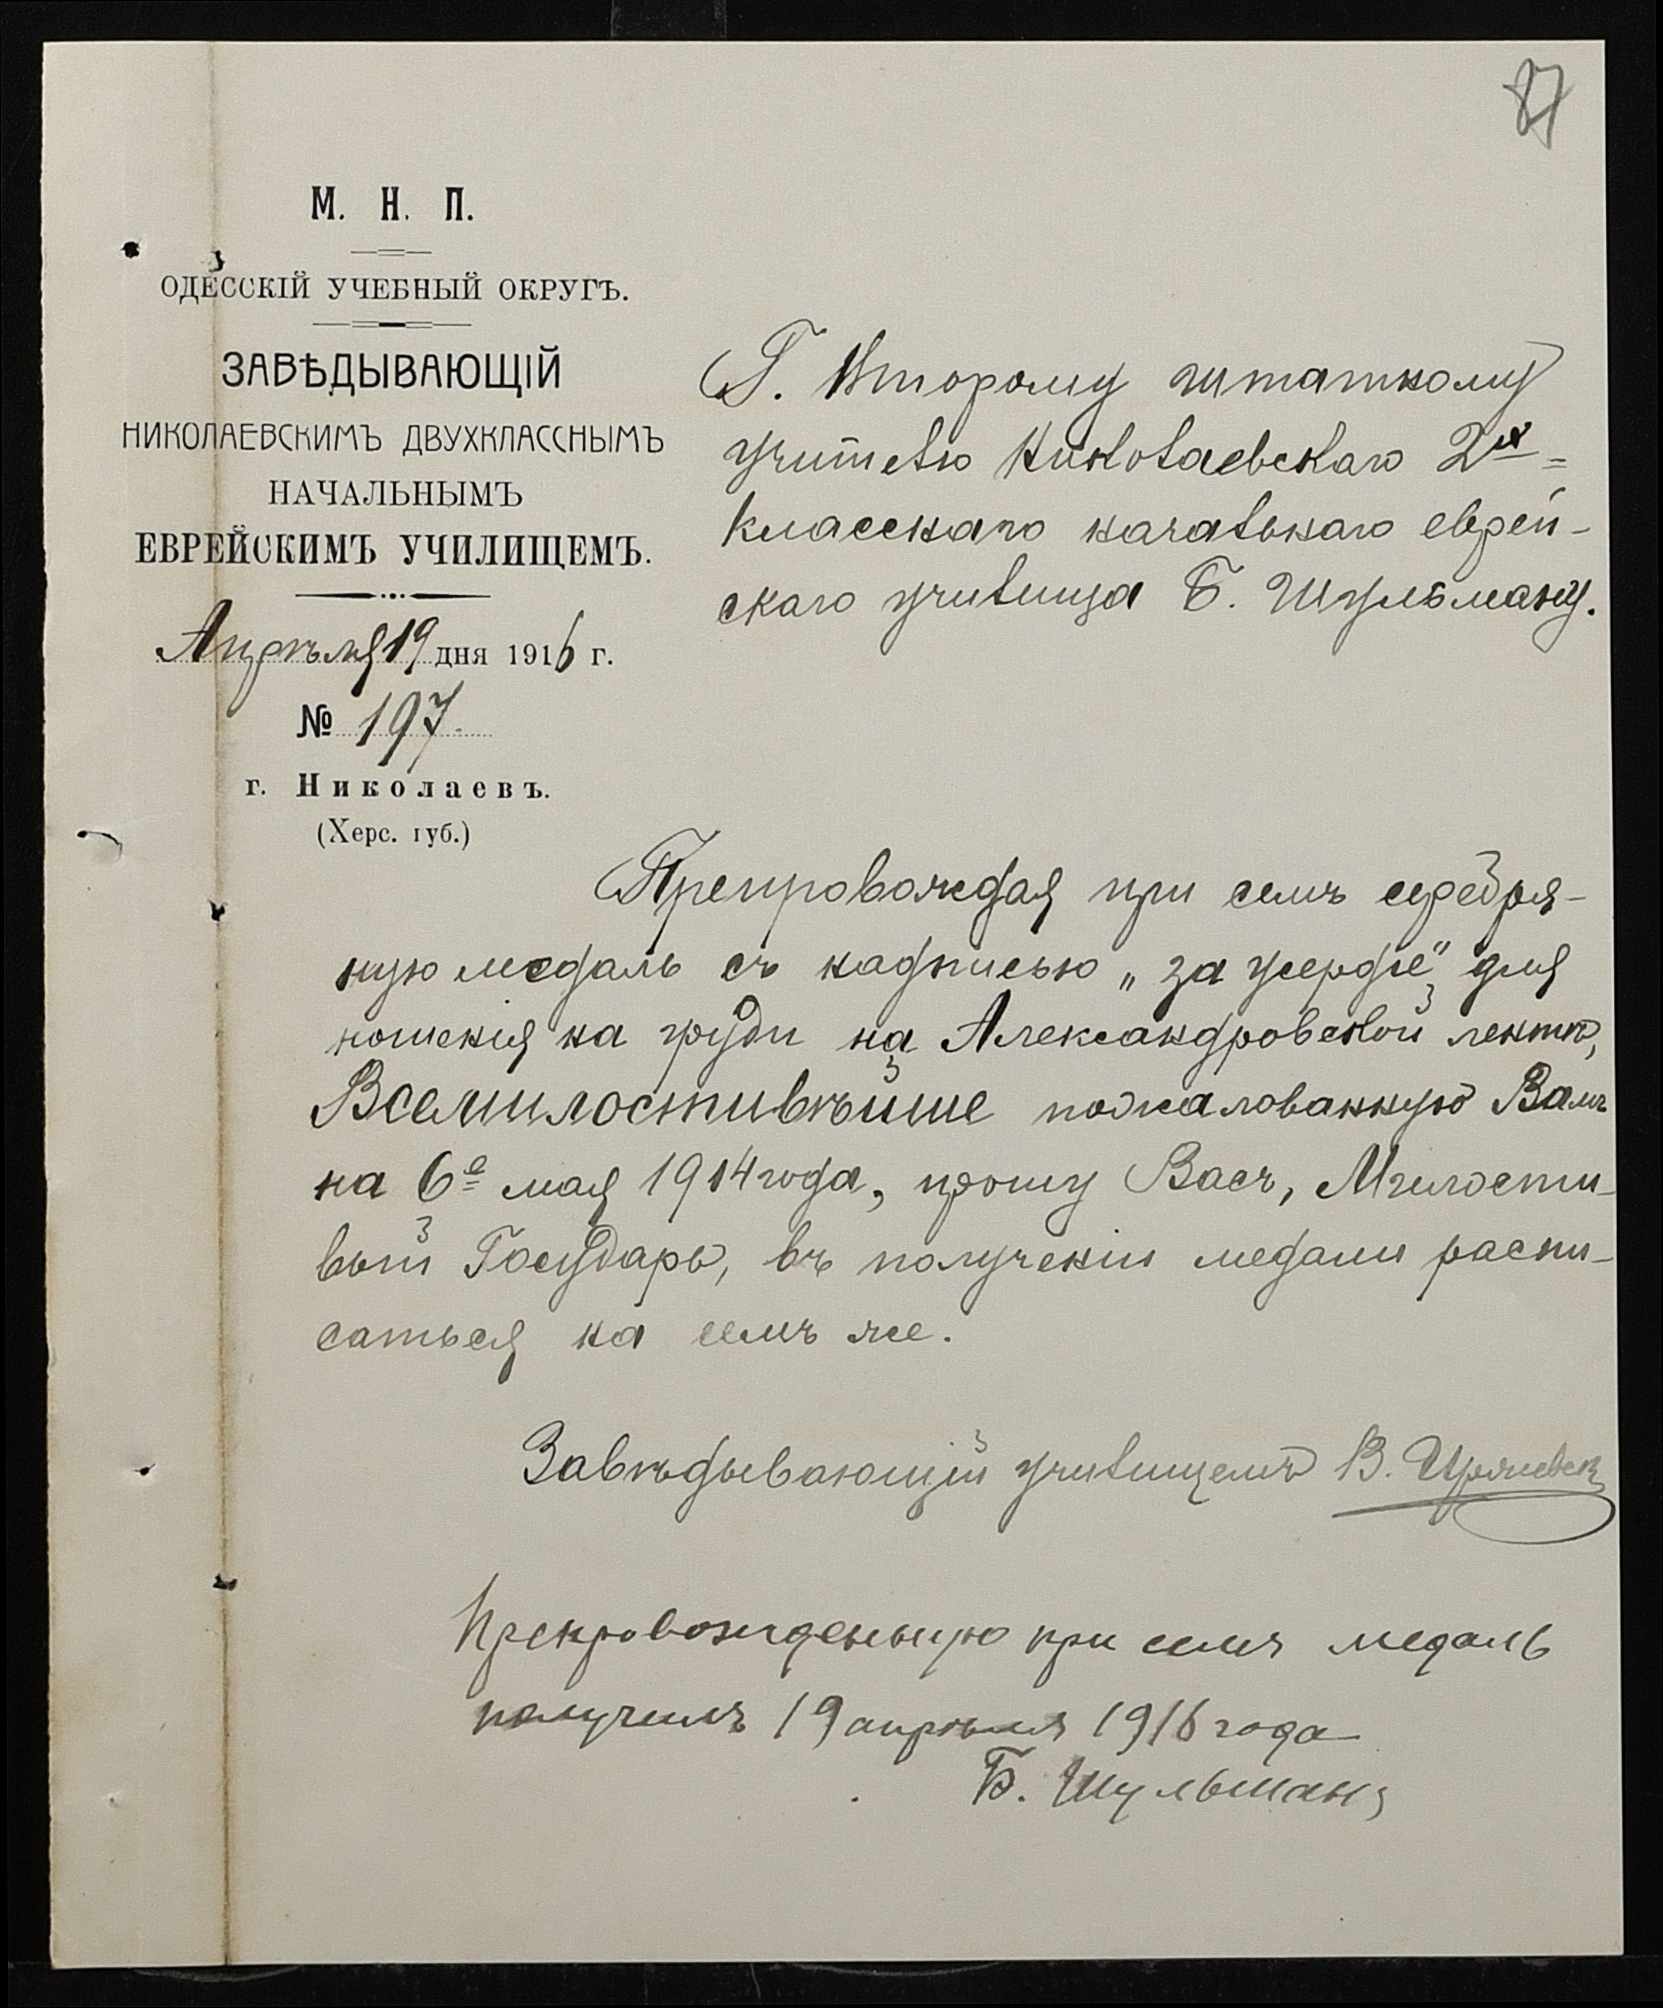 87
М. Н. П.
ОДЕССКІЙ УЧЕБНЫЙ ОКРУГЪ.
ЗАВѢДЫВАЮЩІЙ
НИКОЛАЕВСКИМЪ ДВУХКЛАССНЫМЪ
НАЧАЛЬНЫМЪ
ЕВРЕЙСКИМЪ УЧИЛИЩЕМЪ.
Апрѣля 19 дня 1916 г.
№ 197
г. Николаевъ.
(Херс. губ.)
Г. Второму штатному
учителю Николаевскаго 2х=
класснаго начальнаго еврей-
скаго училища Б. Шульману.
Препровождая при семъ серебря-
ную медаль съ надписью „за усердіе" для
ношенія на груди на Александровской лентѣ,
Всемилостивѣйше пожалованную Вамъ
на 6е мая 1914 года, прошу Васъ, Милости-
вый Государь, въ полученіи медали распи-
саться на семъ же.
Завѣдывающій училищемъ В.
Препровожденную при семъ медаль
получилъ 19 апрѣля 1916 года
Б. Шульманъ